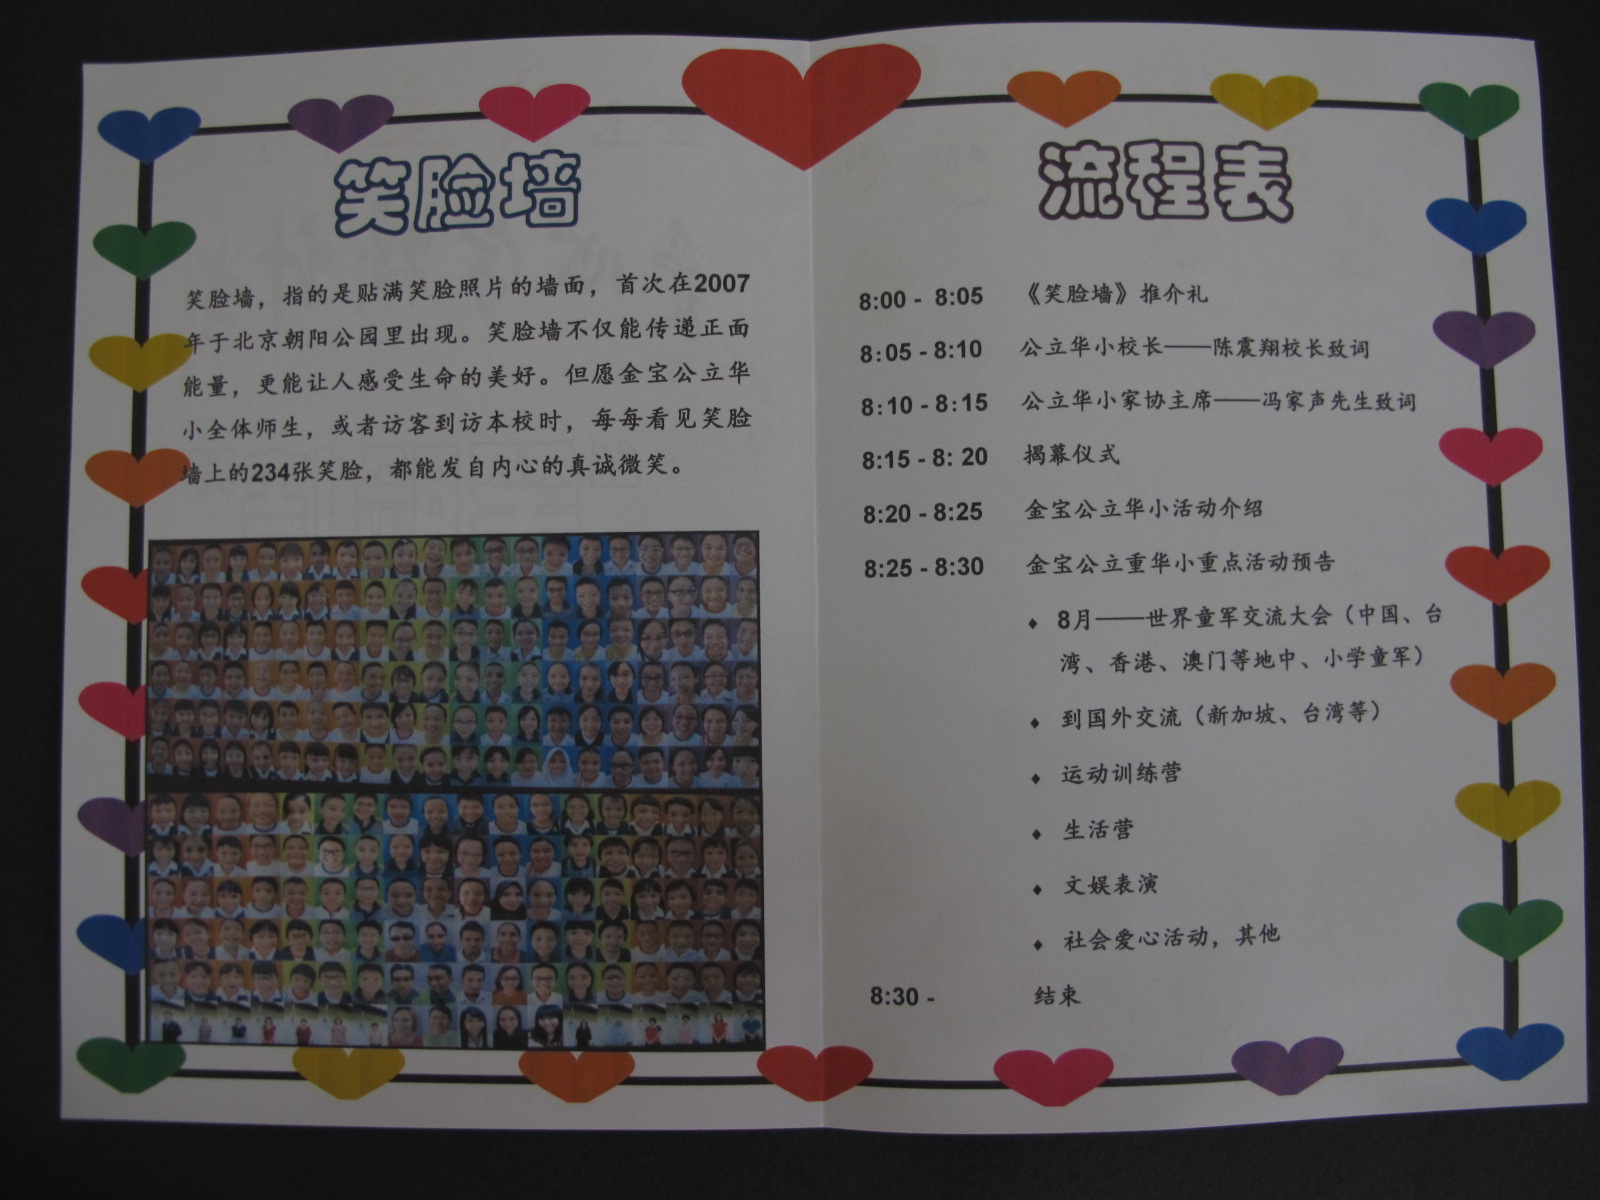 笑脸墙
笑脸墙，指的是贴满笑脸照片的墙面，首次在2007
年于北京朝阳公园里出现。笑脸墙不仅能传递正面
能量，更能让人感受生命的美好。但愿金宝公立华
小全体师生，或者访客到访本校时，每每看见笑脸
墙上的234张笑脸，都能发自内心的真诚微笑。
流程表
8:00 - 8:05 《笑脸墙》推介礼
8:05 - 8:10 公立华小校长——陈震翔校长致词
8:10 - 8:15 公立华小家协主席——冯家声先生致词
8:15 - 8: 20 揭幕仪式
8:20 - 8:25 金宝公立华小活动介绍
8:25 - 8:30 金宝公立重华小重点活动预告
♦ 8月——世界童军交流大会（中国、台
湾、香港、澳门等地中、小学童军）
♦ 到国外交流（新加坡、台湾等）
♦ 运动训练营
♦ 生活营
♦ 文娱表演
♦ 社会爱心活动，其他
8:30 - 结束